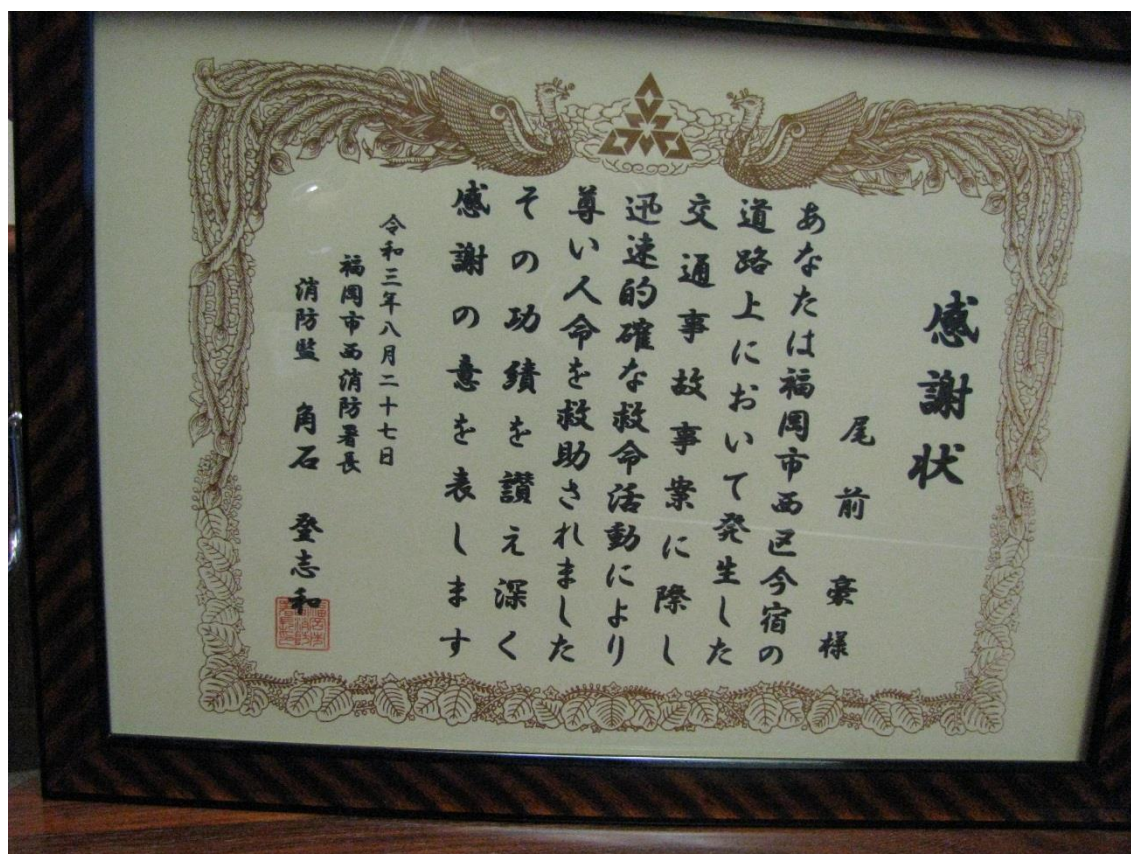 感謝状
尾前 豪様
あなたは福岡市西区今宿の
道路上において発生した
交通事故事案に際し
迅速的確な救命活動により
尊い人命を救助されました
その功績を讃え深く
感謝の意を表します
令和三年八月二十七日
福岡市西消防署長
消防監 角石 登志和